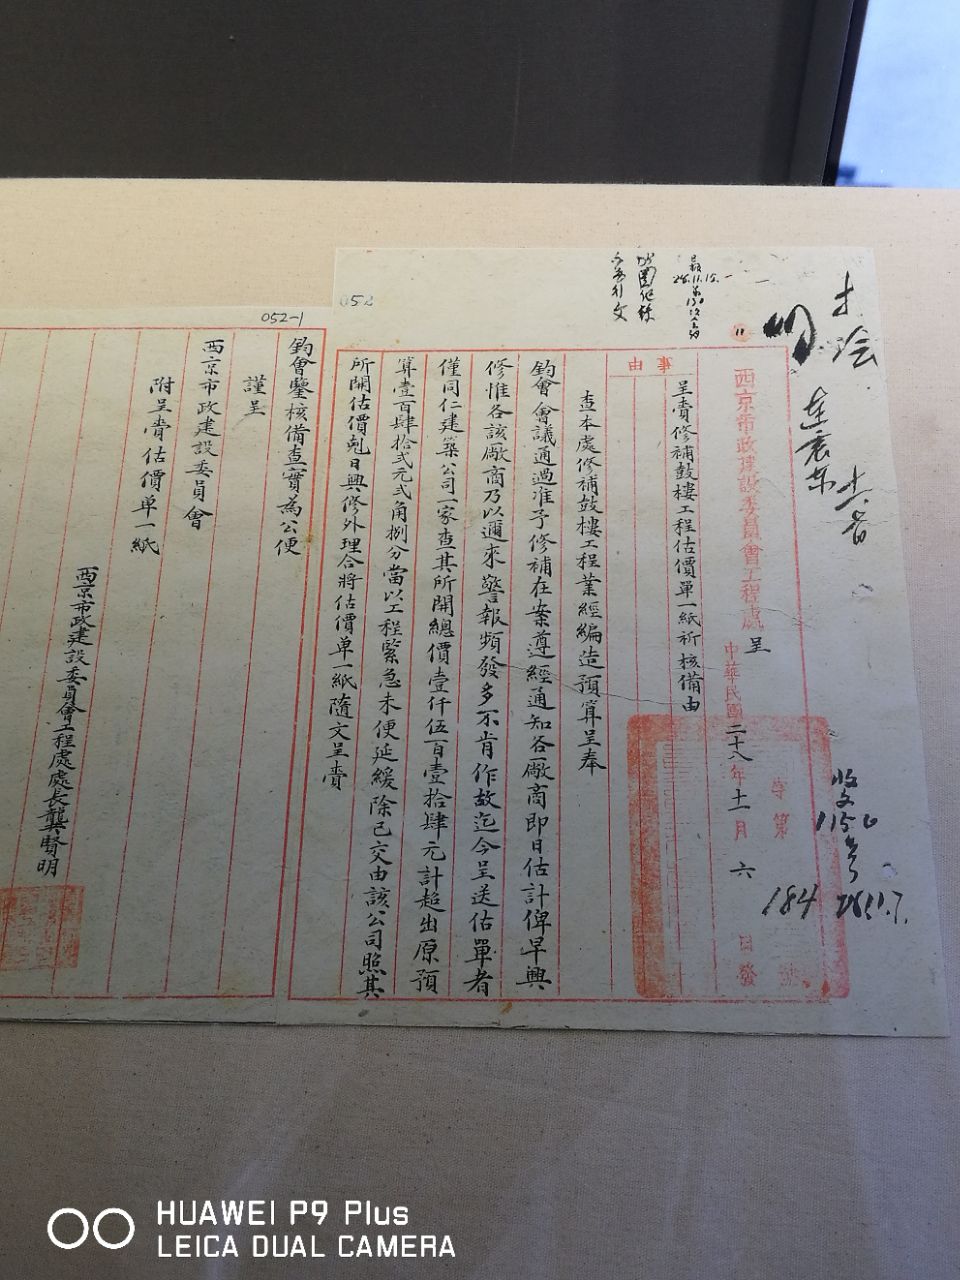 西京市政建設委員會工程處 呈
中華民國二十八年十一月六日發
字第 號
事由
呈賫修補鼓樓工程估價單一紙祈核備由
查本處修補鼓樓工程業經編造預算呈奉
鈞會會議通過准予修補在案遵經通知各廠商即日估計俾早興
修惟各該廠商乃以邇來警報頻發多不肯作故迄今呈送估單者
僅同仁建築公司一家查其所開總價壹仟伍百壹拾肆元計超出原預
算壹百肆拾弍元弍角捌分當以工程緊急未便延緩除已交由該公司照其
所開估價尅日興修外理合將估價單一紙隨文呈賫
鈞會鑒核備查實為公便
謹呈
西京市政建設委員會
附呈賫估價單一紙
西京市政建設委員會工程處處長龔賢明
收文
1156
號
184
28.11.7.
28.11.15.
052
052-1
HUAWEI P9 Plus
LEICA DUAL CAMERA